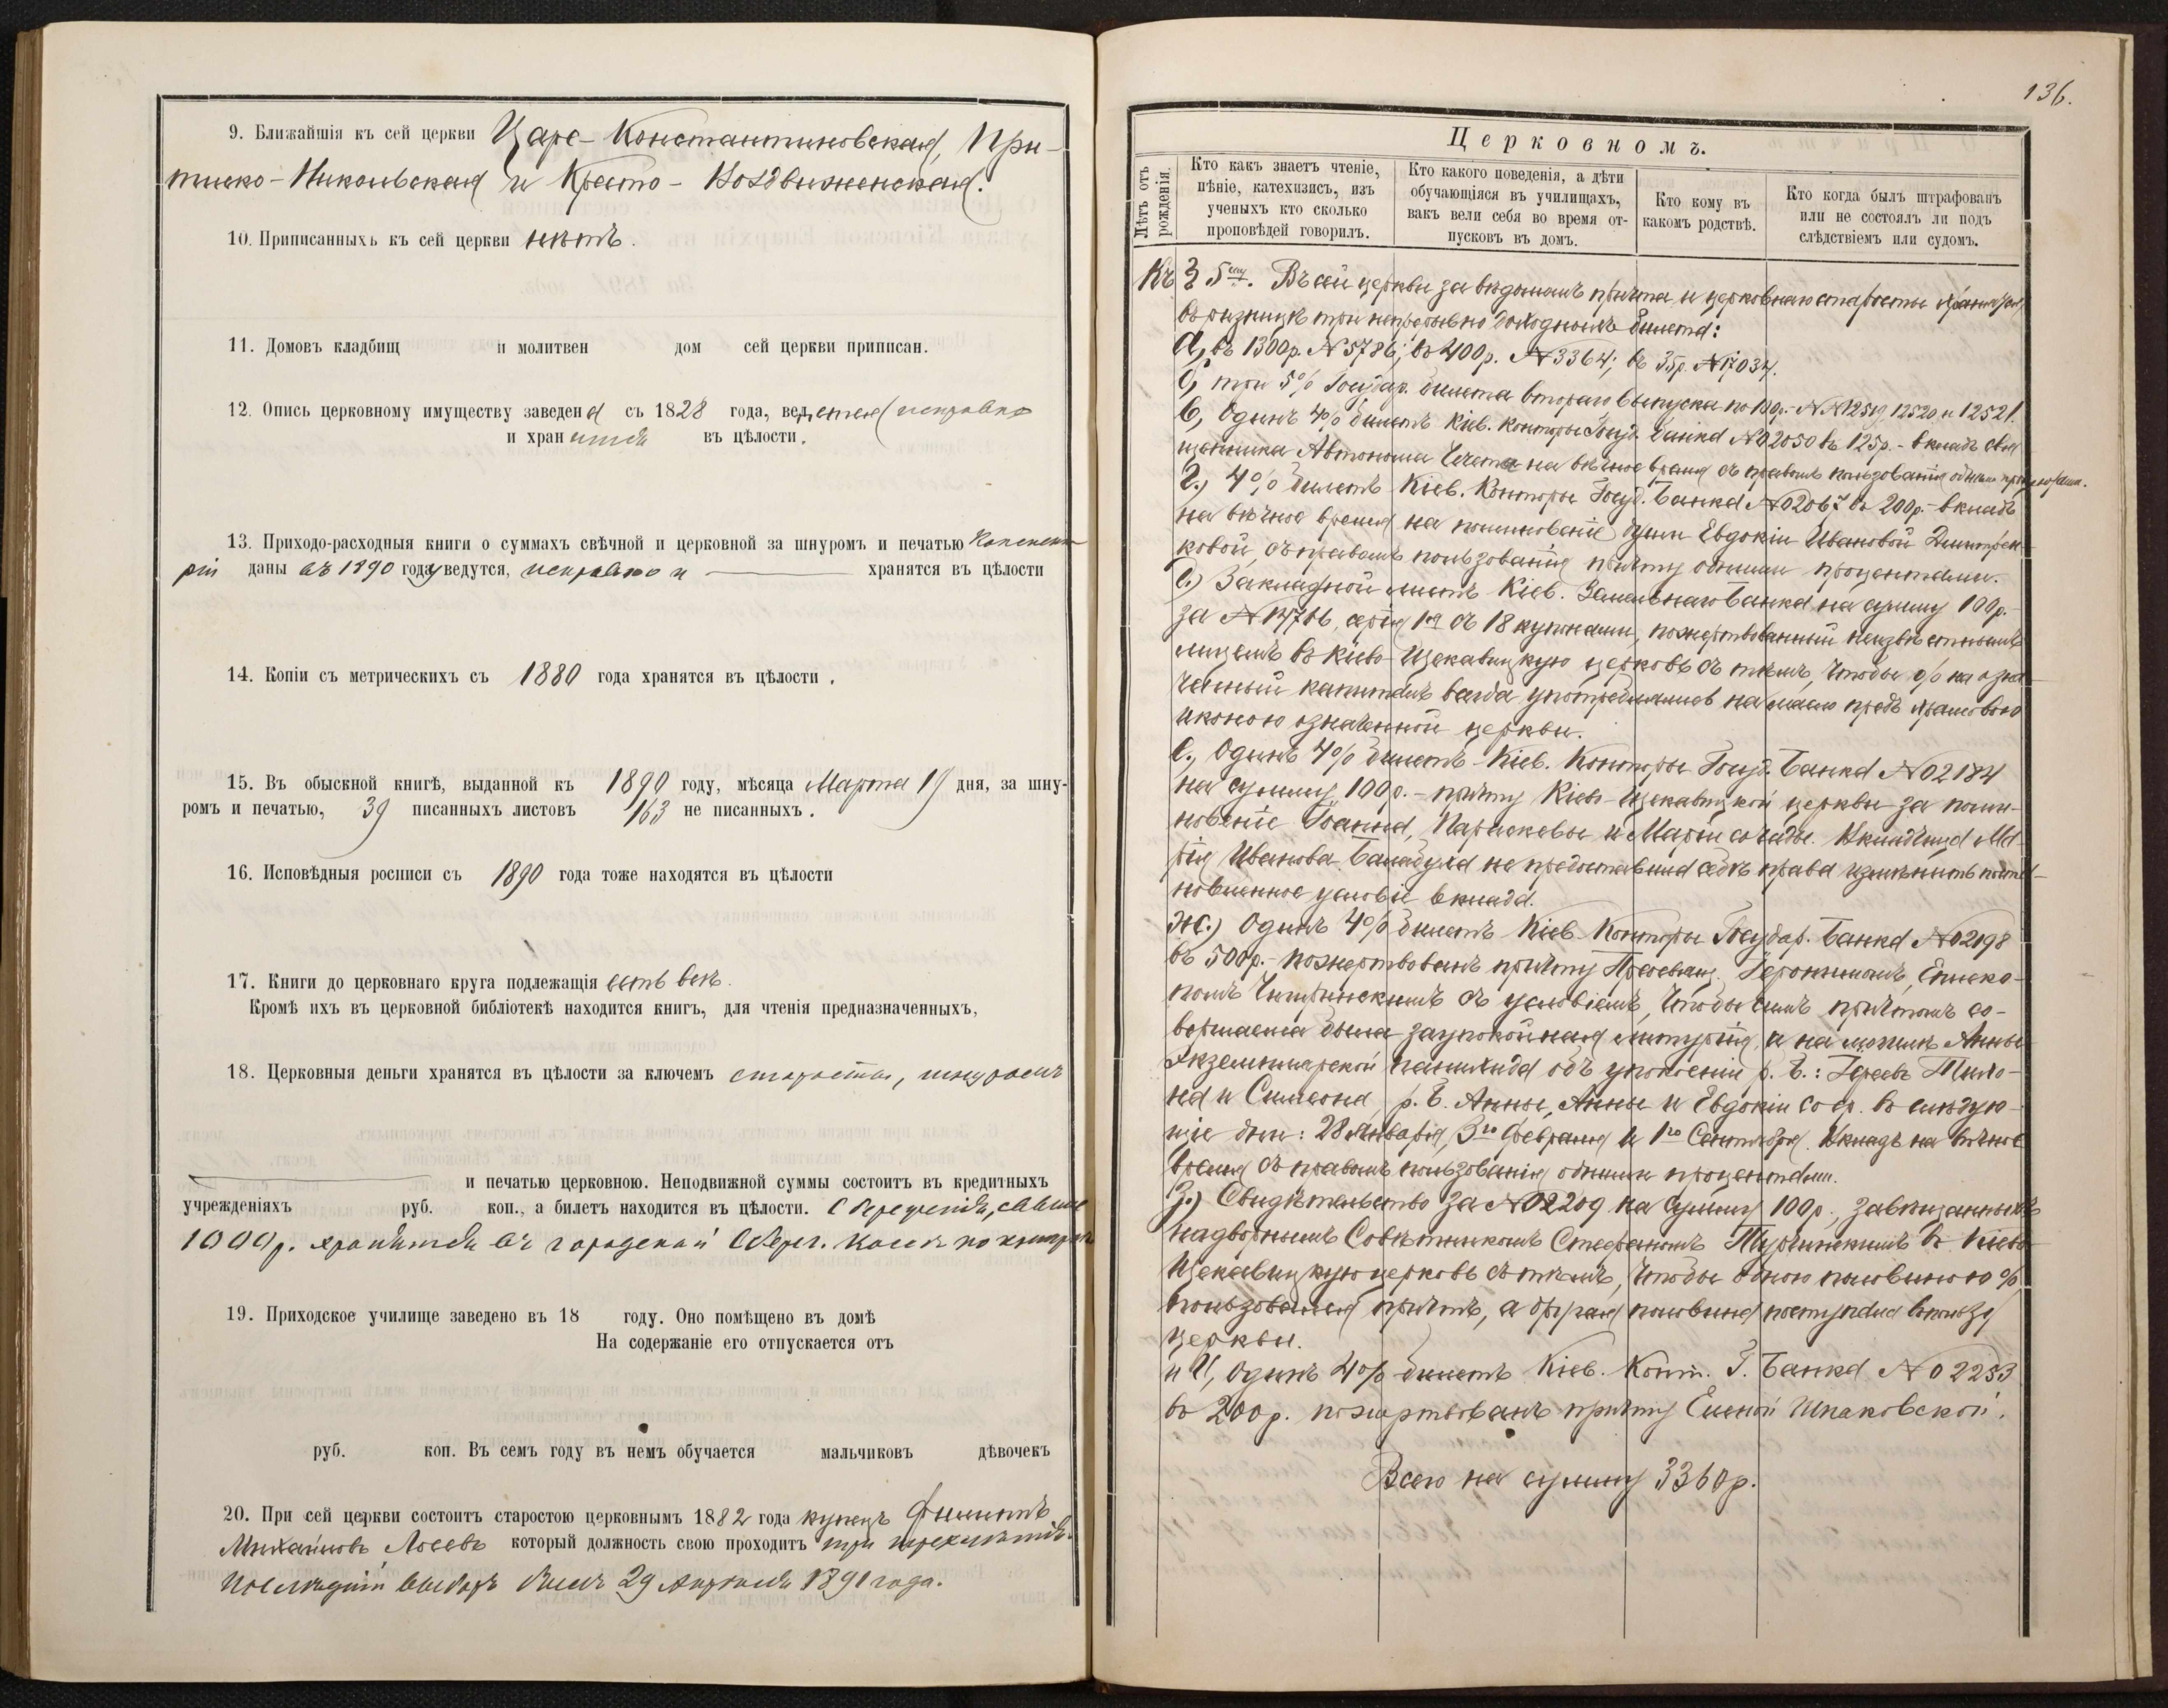 9. Ближайшія къ сей церкви Царе-Константиновская, При-
тиско-Николаевская и Кресто-Воздвиженская.
10. Приписанныхъ къ сей церкви нѣтъ.
11. Домовъ кладбищ и молитвен дом сей церкви приписан.
12. Опись церковному имуществу заведена съ 1828 года, ведется исправно
и хранится въ цѣлости.
13. Приходо-расходныя книги о суммахъ свѣчной и церковной за шнуромъ и печатью Консисто-
ріи даны въ 1890 году ведутся, исправно и хранятся въ цѣлости
14. Копіи съ метрическихъ съ 1880 года хранятся въ цѣлости.
15. Въ обыскной книгѣ, выданной къ 1890 году, мѣсяца Марта 19 дня, за шну-
ромъ и печатью, 39 писанныхъ листовъ 163 не писанныхъ.
16. Исповѣдныя росписи съ 1890 года тоже находятся въ цѣлости
17. Книги до церковнаго круга подлежащія есть всѣ.
Кромѣ ихъ въ церковной библіотекѣ находится книгъ, для чтенія предназначенныхъ,
18. Церковныя деньги хранятся въ цѣлости за ключемъ старосты, шнуромъ
и печатью церковною. Неподвижной суммы состоитъ въ кредитныхъ
учрежденіяхъ руб. коп., а билетъ находится въ цѣлости. свыше
1000 р. хранится въ городской Сберег. кассѣ по
19. Приходское училище заведено въ 18 году. Оно помѣщено въ домѣ
На содержаніе его отпускается отъ
руб. коп. Въ семъ году въ немъ обучается мальчиковъ дѣвочекъ
20. При сей церкви состоитъ старостою церковнымъ 1882 года купецъ Филиппъ
Михайловъ Лосевъ который должность свою проходитъ три трехлѣтія.
Послѣдній выборъ былъ 29 Апрѣля 1891 года.
136.
Церковномъ.
Лѣтъ отъ рожденія.
Кто какъ знаетъ чтеніе,
пѣніе, катехизисъ, изъ
ученыхъ кто сколько
проповѣдей говорилъ.
Кто какого поведенія, а дѣти
обучающіяся въ училищахъ,
вакъ вели себя во время от-
пусковъ въ домъ.
Кто кому въ
какомъ родствѣ.
Кто когда былъ штрафованъ
или не состоялъ ли подъ
слѣдствіемъ или судомъ.
Въ сей церкви за вѣдомомъ причта и церковнаго старосты хранятся
въ ризницѣ три непрерывно доходныхъ билета:
а, въ 1300р. N 5786; въ 400р. N 3364; въ 35р. N 17034.
б, три 5% Государ. билета втораго выпуска по 100р. NN 12519, 12520 и 12521.
в, Одинъ 4% билетъ Кіев. Конторы Госуд. Банка N 02050 въ 125р. - вкладъ свя
щенника Автонома на вѣчное время съ правомъ пользованія одними процентами.
г.) 4% билетъ Кіев. Конторы Госуд. Банка N 02067 въ 200р. - вкладъ
на вѣчное время на поминовеніе души Евдокіи Ивановой
ковой, съ правомъ пользованія причту одними процентами.
Закладной листъ Кіев. Земельнаго Банка на сумму 100р.
за N серія 1я съ 18 купонами, пожертвованный неизвѣстнымъ
лицемъ въ Кіево-Щекавицкую церковь съ тѣмъ, чтобы % на озна
ченный капиталъ всегда употреблялись на масло предъ храмовою
иконою означенной церкви.
е., Одинъ 4% билетъ Кіев. Конторы Госуд. Банка N 02184
на сумму 100р. - причту Кіево-Щекавицкой церкви за поми-
новеніе Іоанна, Параскевы и Маріи со чады. Вкладчица Ма-
рія Иванова не предоставила себѣ права измѣнить поста-
новленное условіе вклада.
ж.) Одинъ 4% билетъ Кіев. Конторы Государ. Банка N 02198
въ 500р. - пожертвованъ причту Преосвящ. Іеронимомъ, Еписко-
помъ Чигиринскимъ съ условіемъ, чтобы симъ причтомъ со-
вершаема была заупокойная литургія, и на могилѣ Анны
Экземплярской панихида объ упокоеніи р. Б.: Іереевъ Тихо-
на и Симеона, р. Б. Анны, Анны и Евдокіи со ср. въ слѣдую-
щіе дни: 28 Января, 3го Февраля и 1го Сентября. Вкладъ на вѣчное
время съ правомъ пользованія одними процентами.
з.) Свидѣтельство за N 02209 на сумму 100р., завѣщанныхъ
надворнымъ Совѣтникомъ Стефаномъ въ Кіево
Щекавицкую церковь съ тѣмъ, чтобы одною половиною %
пользовался причтъ, а другая половина поступала въ пользу
церкви.
и И, Одинъ 4% билетъ Кіев. Конт. Г. Банка N 02253
въ 200р. пожертвованъ причту Еленой Шпаковской.
Всего на сумму 3360р.